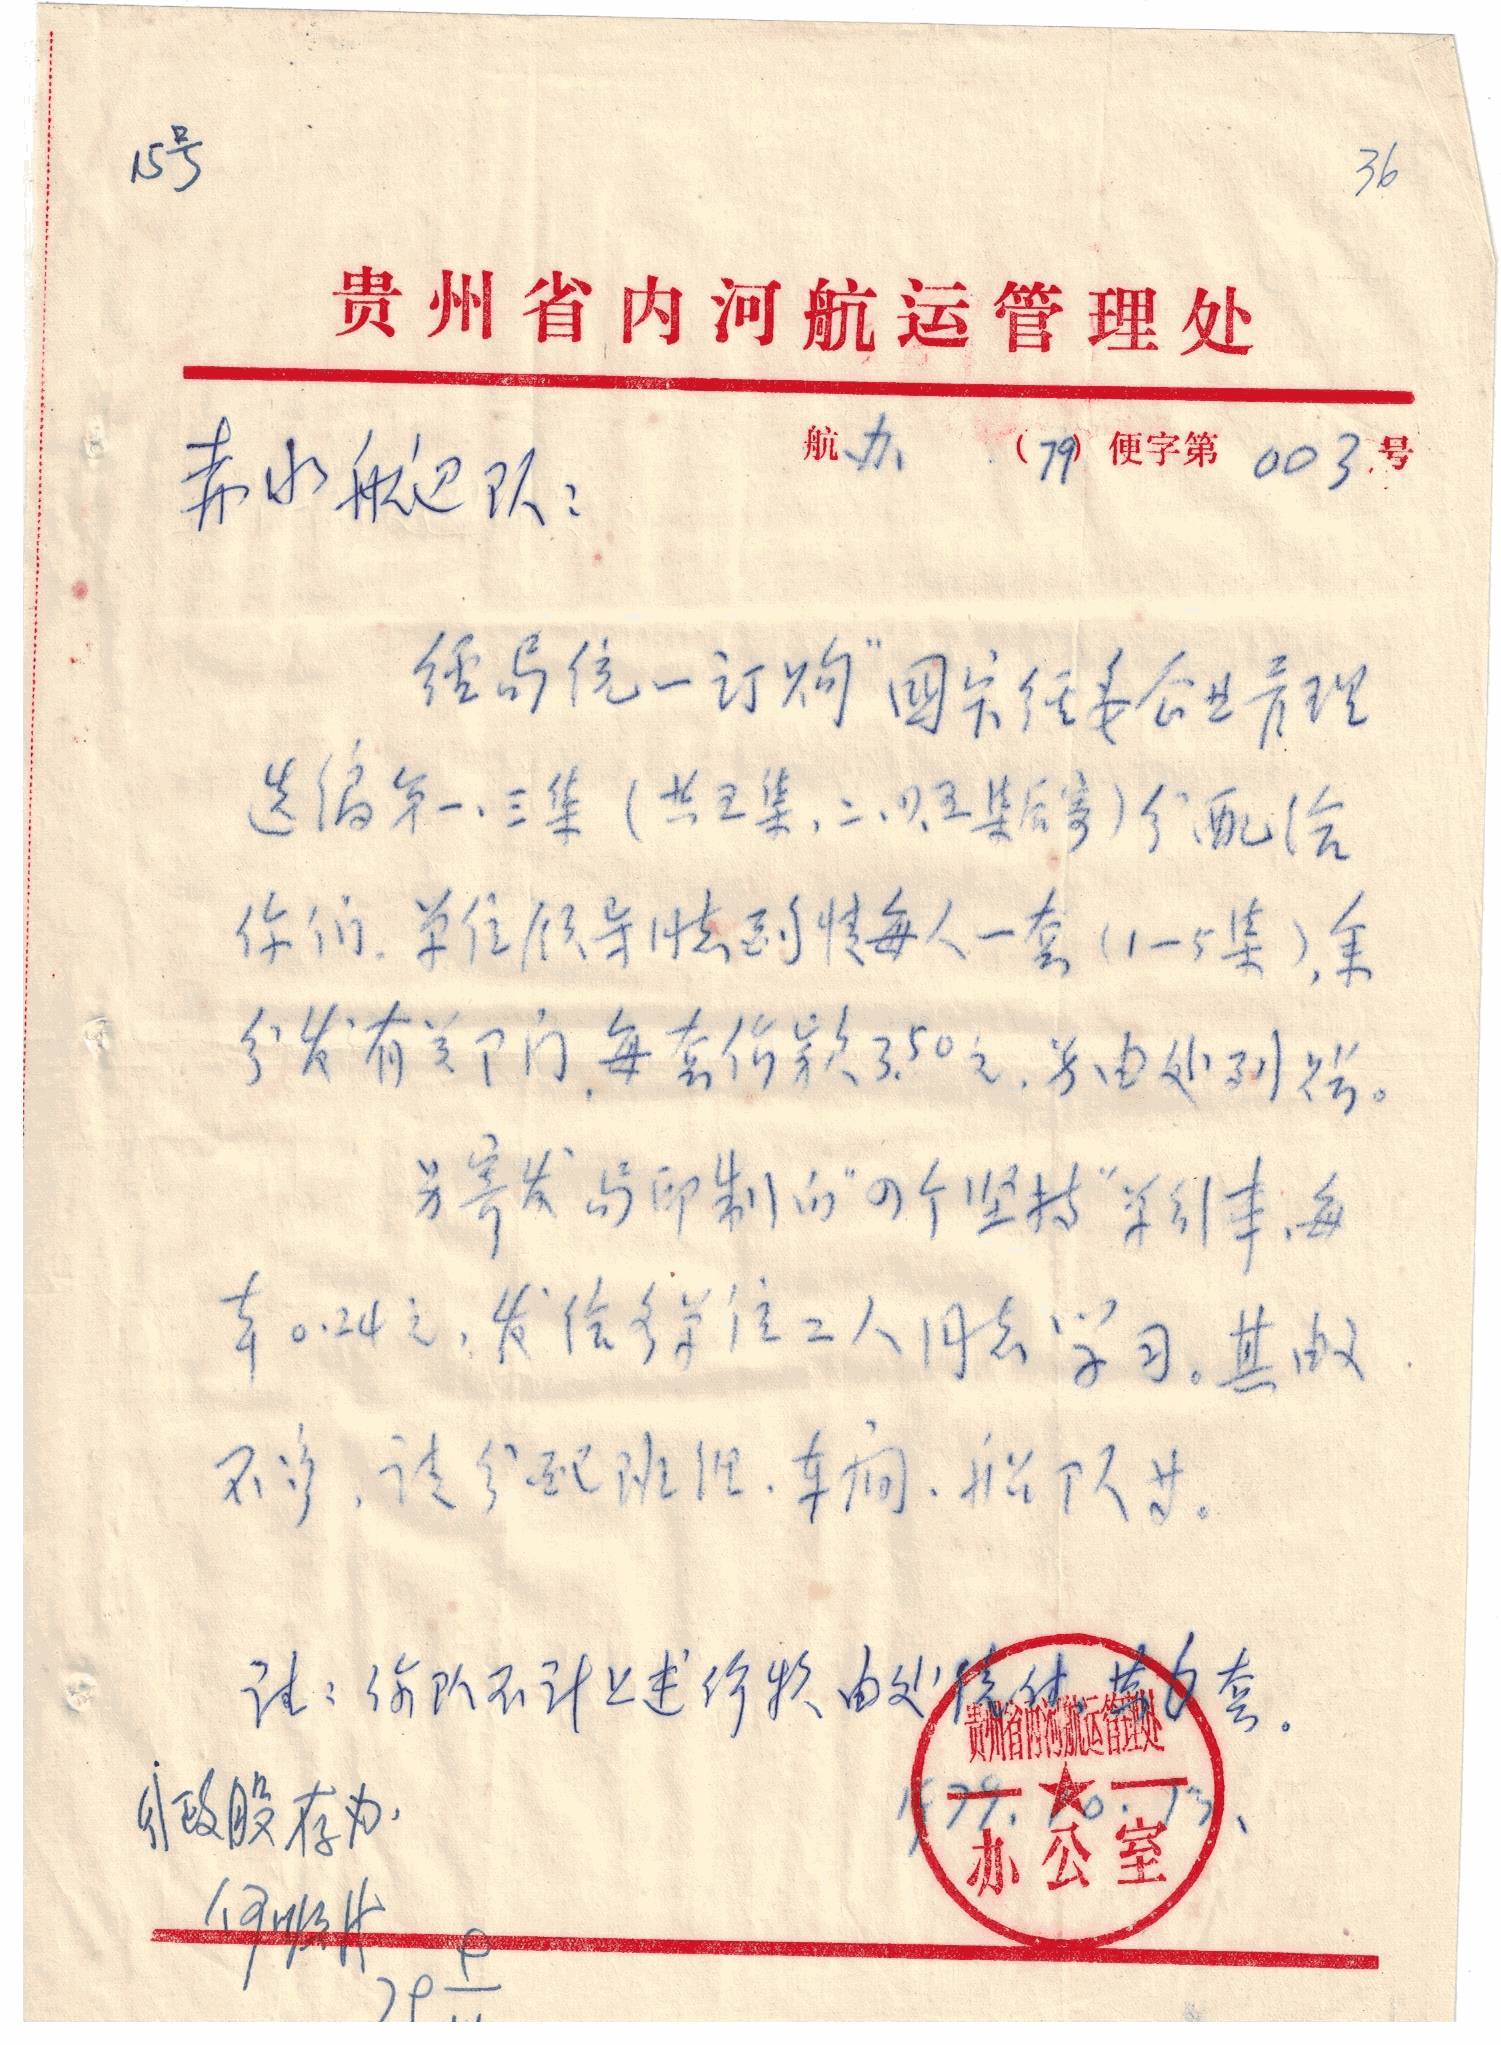 15号
36
贵州省内河航运管理处
航办（79）便字第003号
赤水航运队：
经局统一订购“国家经委企业管理
选编第一、三集（共五集，二、四、五集后寄）分配给
你们。单位领导同志到情每人一套（1—5集），余
分发有关部门，每套价款3.50元，另由处列
另寄发局印制的“四个坚持”学习本，每
本0.24元，发给各单位工人同志学习。其由
不多，请分配班组、车间、船队等。
注：你队不计上述价款由处统付，共 套。
贵州省内河航运管理处
办公室
1979.10.13.
政股存办.
何
79